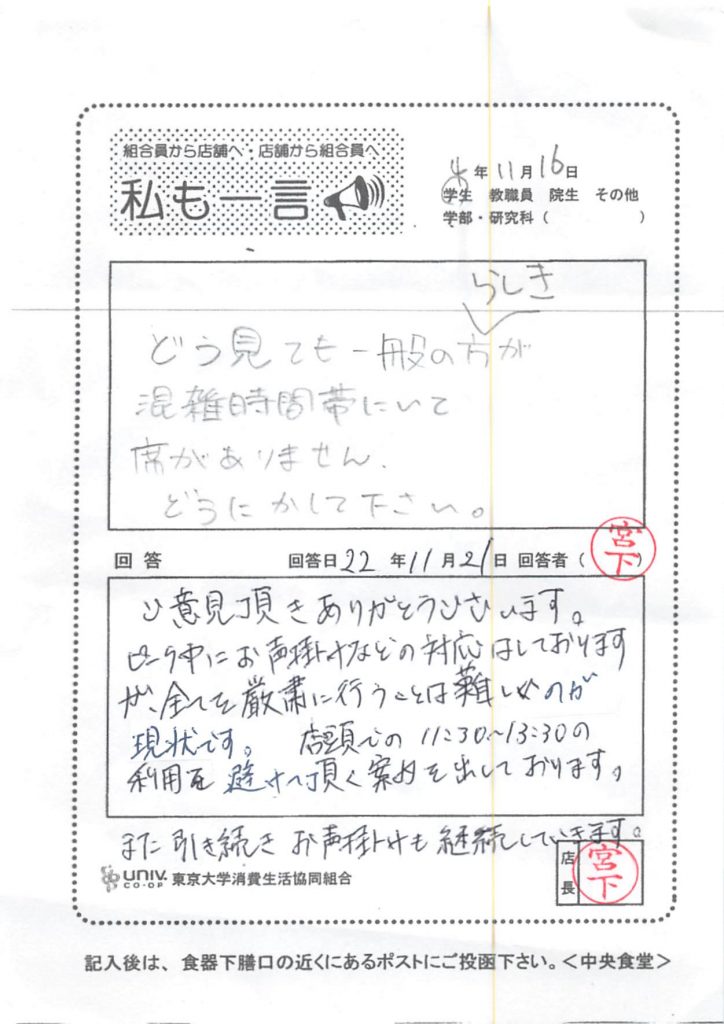 組合員から店舗へ・店舗から組合員へ
私も一言
4年11月16日
学生 教職員 院生 その他
学部・研究科（ ）
らしき
どう見ても一般の方が
混雑時間帯にいて
席がありません.
どうにかして下さい。
回答 回答日22年11月21日 回答者（宮下）
ご意見頂きありがとうございます。
ピーク中にお声掛けなどの対応はしております
が、全てを厳粛に行うことは難しいのが
現状です。 店頭での11:30~13:30の
利用を避けて頂く案内を出しております。
また引き続きお声掛けも継続していきます。
店長 宮下
univ. CO-OP 東京大学消費生活協同組合
記入後は、食器下膳口の近くにあるポストにご投函下さい。＜中央食堂＞